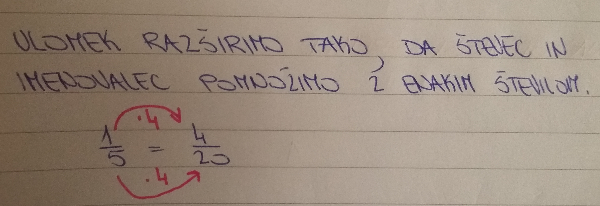 ULOMEK RAZŠIRIMO TAKO, DA ŠTEVEC IN
IMENOVALEC POMNOŽIMO Z ENAKIM ŠTEVILOM.
·4
1/5 = 4/20
·4